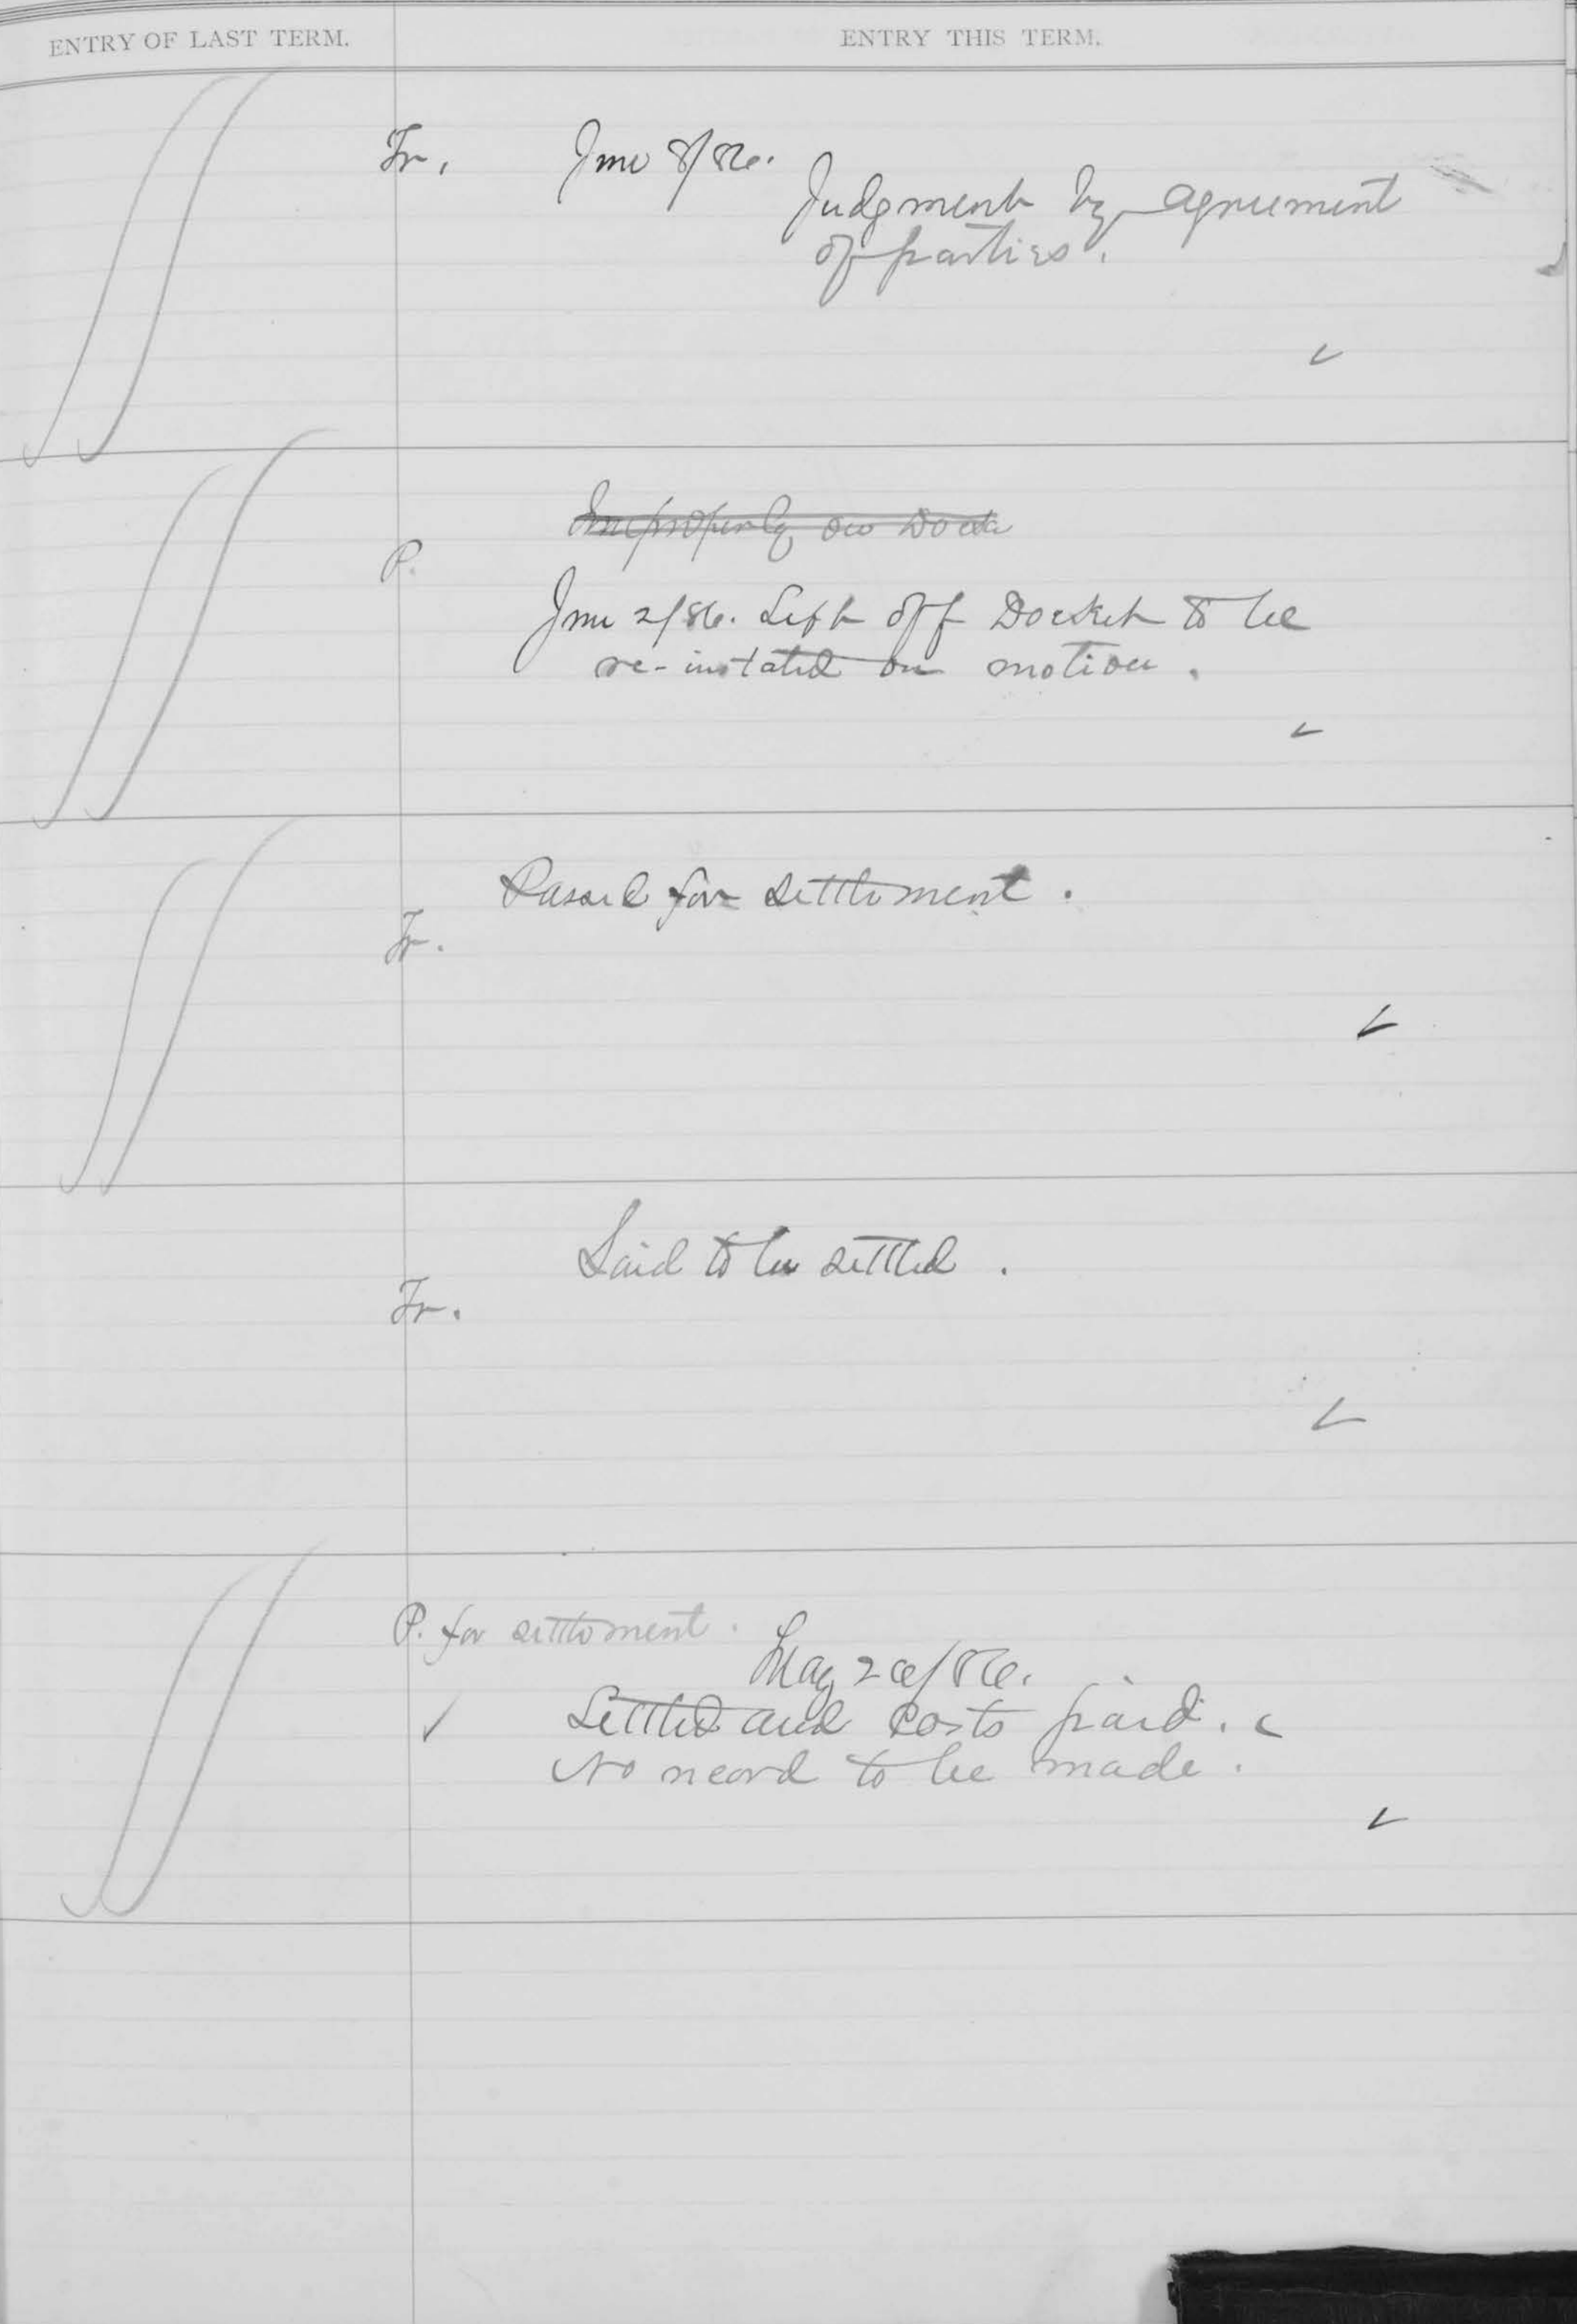 ENTRY OF LAST TERM. ENTRY THIS TERM.
Fr. June 8/86.
Judgment by agreement
of parties.
Improperly on Dock
P.
June 2/86. Left off Docket to be
re-instated on motion.
Passed for settlement.
Fr.
Said to be settled.
Fr.
P. for settlement.
May 26/86.
✓ Settled and costs paid.
No record to be made.